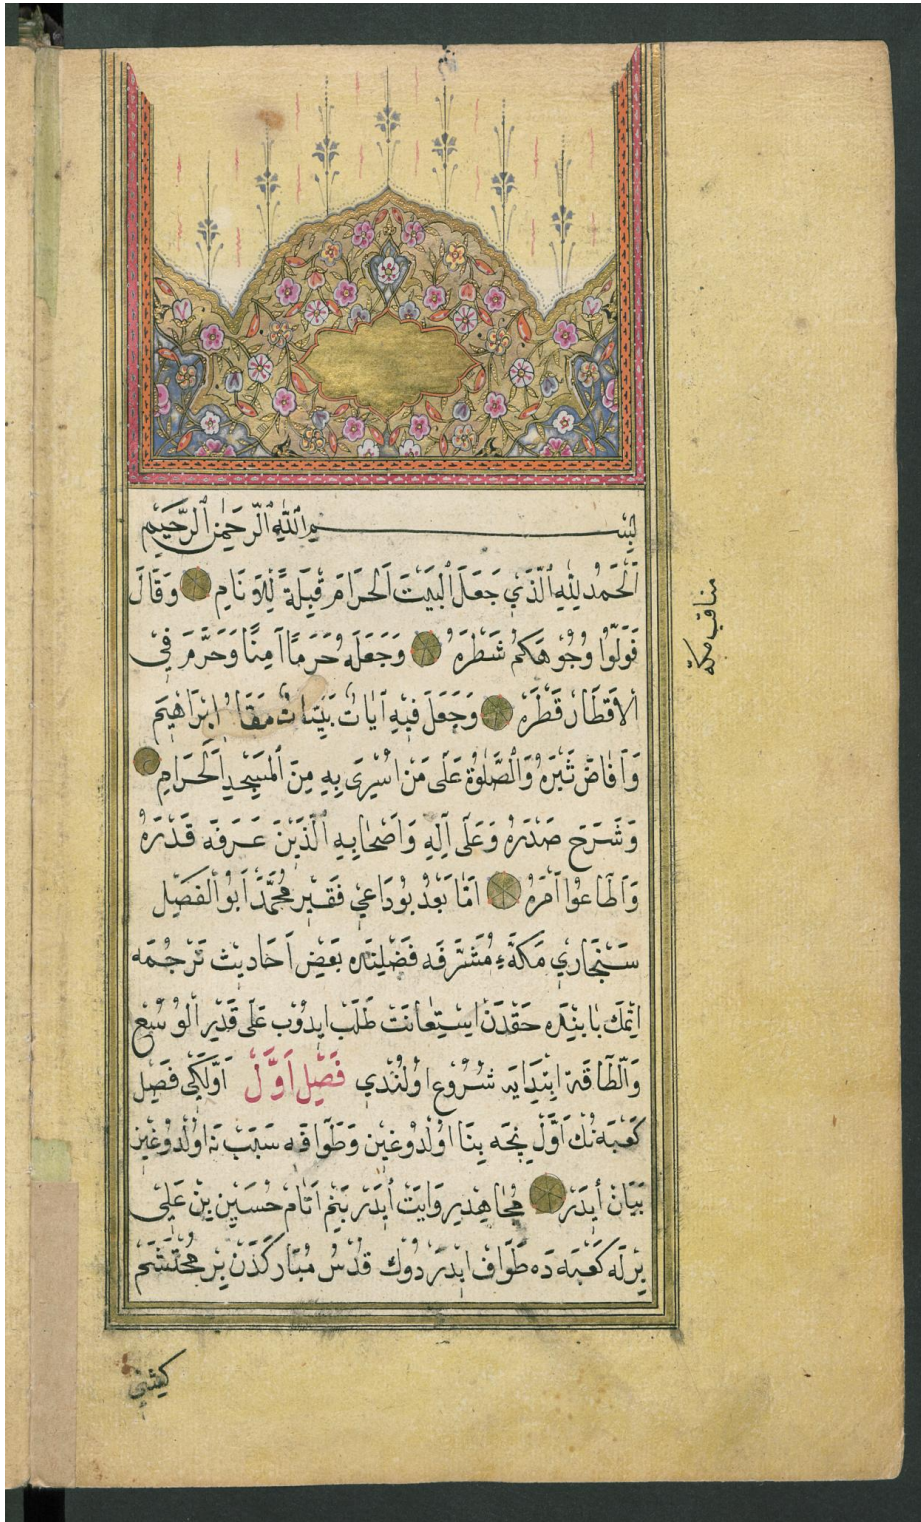 بسم الله الرحمن الرحيم
اَلْحَمْدُ لِلّٰهِ الَّذِي جَعَلَ الْبَيْتَ الْحَرَامَ قِبْلَةً لِلْاَنَامِ وَقَالَ
فَوَلُّوا وُجُوهَكُمْ شَطْرَهُ وَجَعَلَهُ حَرَمًا اٰمِنًا وَحَرَّمَ فِي
الْاَقْطَارِ قَطْرَهُ وَجَعَلَ فِيهِ اٰيَاتٌ بَيِّنَاتٌ مَقَامُ اِبْرَاهِيمَ
وَاَفَاضَ ثَبْرَهُ وَالصَّلٰوةُ عَلَى مَنْ اُسْرِيَ بِهِ مِنَ الْمَسْجِدِ الْحَرَامِ
وَشَرَحَ صَدْرَهُ وَعَلَى اٰلِهِ وَاَصْحَابِهِ الَّذِينَ عَرَفَهُ قَدْرَهُ
وَاَطَاعُوا اَمْرَهُ اَمَّا بَعْدُ بُودَاعِي فَقِير مُحَمَّدْ اَبُو الْفَضِل
سَنْجَارِي مَكَّهءِ مُشَرَّفَه فَضْلِنْدَه بَعْضِ اَحَادِيث تَرْجُمَه
اِتْمَكْ بَابِنْدَه حَقْدَنْ اِسْتِعَانَتْ طَلَبْ اِيدُوب عَلَى قَدْرِ الْوُسْعِ
وَالطَّاقَة اِبْتِدَايَه شُرُوع اُولُنْدِي فَصْلِ اَوَّلْ اَوَّلَكِي فَصِل
كَعْبَه نُكْ اَوَّلْ نِجَه بِنَا اُولْدُوغِين وَطَوَافَه سَبَبْ نَه اُولْدُوغِين
بَيَانْ اَيْدَرْ مُجَاهِدِ رِوَايَتْ اَيْدَرْ بَنِمْ اَتَامْ حُسَيْن بِنْ عَلِي
بِرْلَه كَعْبَه دَه طَوَافْ اِيدَرْدُوكْ قُدْسُ مُبَارَكْدَنْ بِرْ مُحْتَشَمْ
كيشي
مناقب مكه